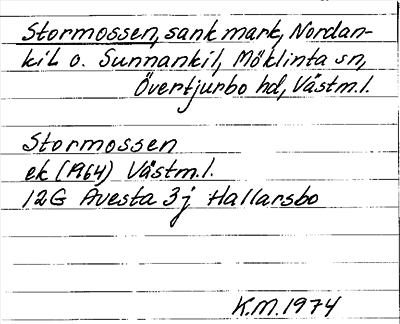 Stormossen, sank mark, Nordan-
kil o. Sunnankil, Möklinta sn,
Övertjurbo hd, Västm.l.
Stormossen
ek (1964) Västm.l.
12G Avesta 3j Hallarsbo
K.M. 1974